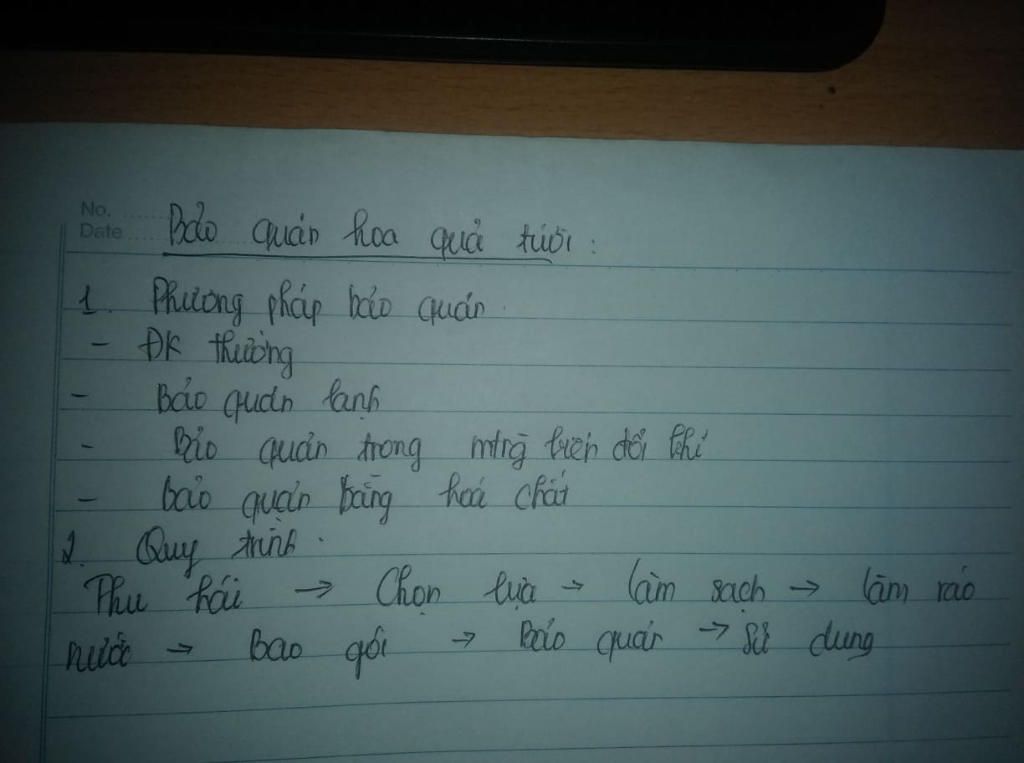 No.
Date
Bảo quản hoa quả tươi:
1. Phương pháp bảo quản.
- ĐK thường
- Bảo quản lạnh
- Bảo quản trong mtrg biến đổi khí
- bảo quản bằng hoá chất
2. Quy trình.
Thu hái → Chọn lựa → làm sạch → làm ráo
nước → Bao gói → Bảo quản → Sử dụng